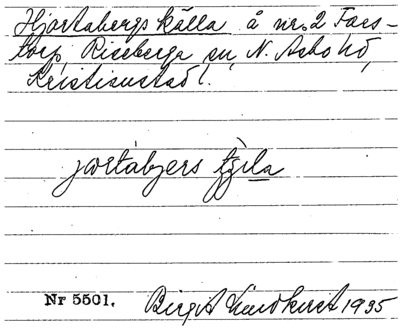 Hjortabergs källa å nr. 2 Fars-
torp, Riseberga sn, N. Åsbo hd,
Kristianstad l.
jortabjers
Nr 5501. Birgit Lindkvist 1935